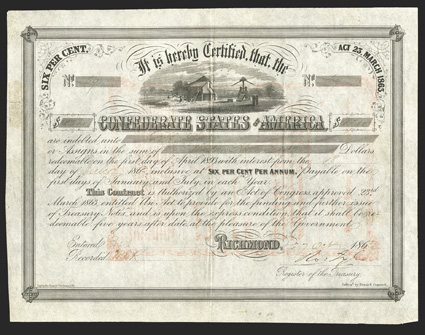 It is hereby Certified, that, the
SIX PER CENT.
ACT 23, MARCH 1863.
No.
No.
CONFEDERATE STATES OF AMERICA
are indebted unto
or Assigns in the sum of Dollars
redeemable on the first day of April with interest from the
day of 186 inclusive at SIX PER CENT PER ANNUM, Payable on the
first days of January and July, in each Year
This Contract is Authorized by an Act of Congress, approved 23rd
March 1863, entitled "An Act to provide for the funding and further issue
of Treasury Notes, and is upon the express condition, that it shall be re-
deemable five years after date at the pleasure of the Government.
Entered
RICHMOND, 186
Recorded
Register of the Treasury.